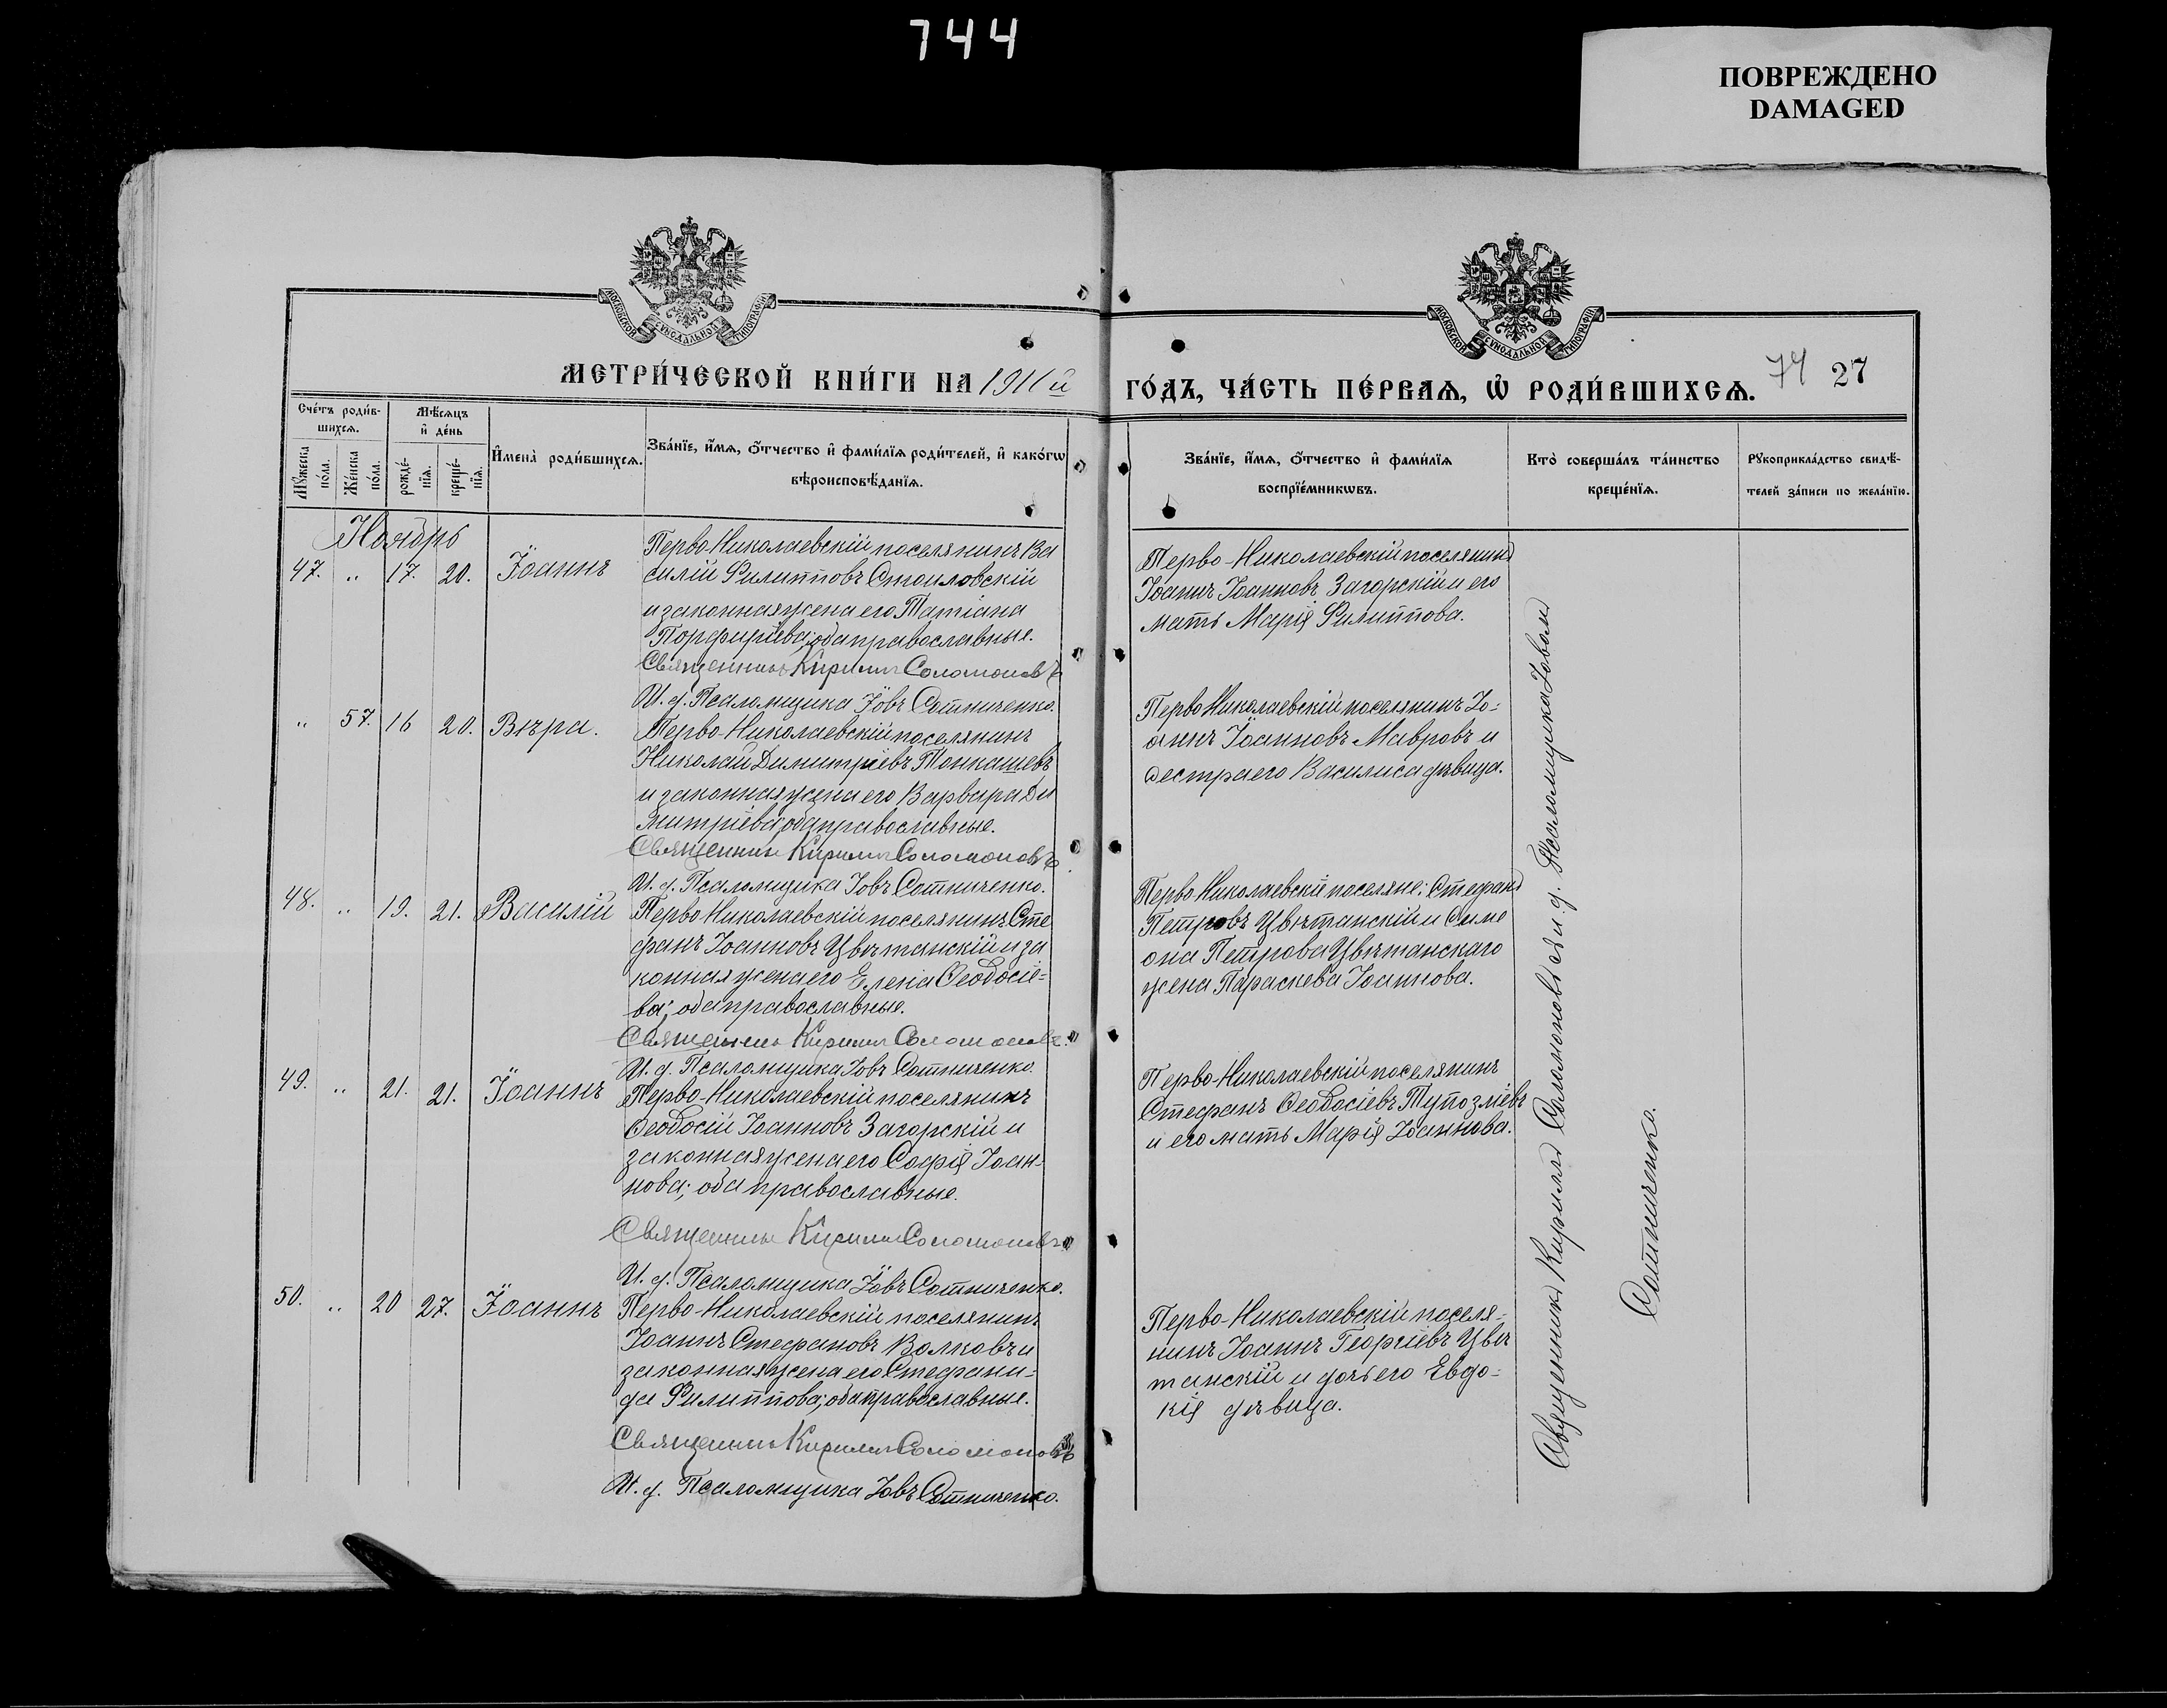 744
ПОВРЕЖДЕНО
DAMAGED
МОСКОВСКОЙ СѴНОДАЛЬНОЙ ТИПОГРАФІИ
МОСКОВСКОЙ СѴНОДАЛЬНОЙ ТИПОГРАФІИ
МЕТРИ́ЧЕСКОЙ КНИ́ГИ НА 1911й
ГО́ДЪ, ЧА́СТЬ ПЕ́РВАѦ, Ѡ҆ РОДИ́ВШИХСѦ.
74 27
Сче́тъ роди́в-
шихсѧ.
Мꙋ́жеска
по́ла.
Же́нска
по́ла.
Мѣ́сѧцъ
и҆ де́нь
рожде́-
нїѧ.
креще́-
нїѧ.
И҆мена̀ роди́вшихсѧ.
Зва́нїе, и҆́мѧ, ѻ҆́тчество и҆ фами́лїѧ роди́телей, и҆ како́гѡ
вѣроисповѣ́данїѧ.
Зва́нїе, и҆́мѧ, ѻ҆́тчество и҆ фами́лїѧ
воспрїе́мникѡвъ.
Кто̀ соверша́лъ та́инство
креще́нїѧ.
Рꙋкоприкла́дство свидѣ́-
телей за́писи по жела́нїю.
Ноябрь
47. " 17. 20. Іоаннъ
Перво-Николаевскій поселянинъ Ва
силій Филипповъ Стоиловскій
и законная жена его Татіана
Порфиріева; оба православные.
Священникъ Кириллъ Соломоновъ
И. д. Псаломщика Іовъ Сотниченко.
Перво-Николаевскій поселянинъ
Іоаннъ Іоанновъ Загорскій и его
мать Марія Филиппова.
" 57. 16 20. Вѣра.
Перво-Николаевскій поселянинъ
Николай Димитріевъ Топкашевъ
и законная жена его Варвара Ди
митріева; оба православные.
Священникъ Кириллъ Соломоновъ
И. д. Псаломщика Іовъ Сотниченко.
Перво Николаевскій поселянинъ Іо-
аннъ Іоанновъ Мавровъ и
сестра его Василиса дѣвица.
48. " 19. 21. Василій
Перво Николаевскій поселянинъ Сте
фанъ Іоанновъ Цвѣтанскій и за
конная жена его Елена Ѳеодосіе-
ва; оба православные.
Священникъ Кириллъ Соломоновъ.
И. д. Псаломщика Іовъ Сотниченко
Перво Николаевскіе поселяне: Стефанъ
Петровъ Цвѣтанскій и Симе
она Петрова Цвѣтанскаго
жена Параскева Іоаннова.
49. " 21. 21. Іоаннъ
Перво-Николаевскій поселянинъ
Ѳеодосій Іоанновъ Загорскій и
законная жена его Софія Іоан-
нова; оба православные.
Священникъ Кириллъ Соломоновъ
И. д. Псаломщика Іовъ Сотниченко.
Перво-Николаевскій поселянинъ
Стефанъ Ѳеодосіевъ Тупозліевъ
и его мать Марія Іоаннова.
50. " 20 27. Іоаннъ
Перво-Николаевскій поселянинъ
Іоаннъ Стефановъ Волковъ и
законная жена его Стефани-
да Филиппова; оба православные.
Священникъ Кириллъ Соломоновъ
И. д. Псаломщика Іовъ Сотниченко.
Перво-Николаевскій поселя-
нинъ Іоаннъ Георгіевъ Цвѣ
танскій и дочь его Евдо-
кія дѣвица.
Священникъ Кириллъ Соломоновъ съ и. д. Псаломщика Іовомъ
Сотниченко.